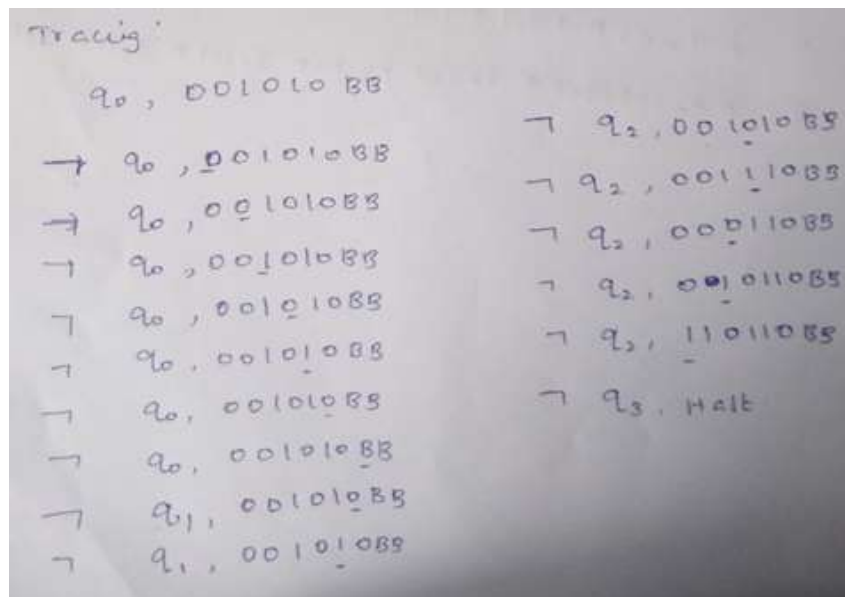 Tracing:
q₀, 001010 BB
→ q₀, 001010BB
→ q₀, 001010BB
⊣ q₀, 001010BB
¬ q₀, 001010BB
¬ q₀, 001010BB
¬ q₀, 001010BB
¬ q₀, 001010BB
¬ q₁, 001010BB
¬ q₁, 001010BB
¬ q₂, 001010BB
¬ q₂, 001110BB
¬ q₂, 000110BB
¬ q₂, 0010110BB
¬ q₂, 110110BB
¬ q₃, Halt